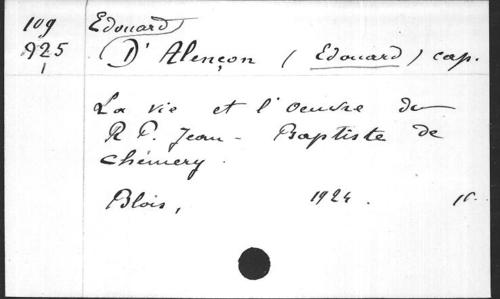 109 Edouard
925 D'Alençon (Edouard) cap.
1
La vie et l'oeuvre du
R P. Jean-Baptiste de
Chémery.
Blois, 1924.